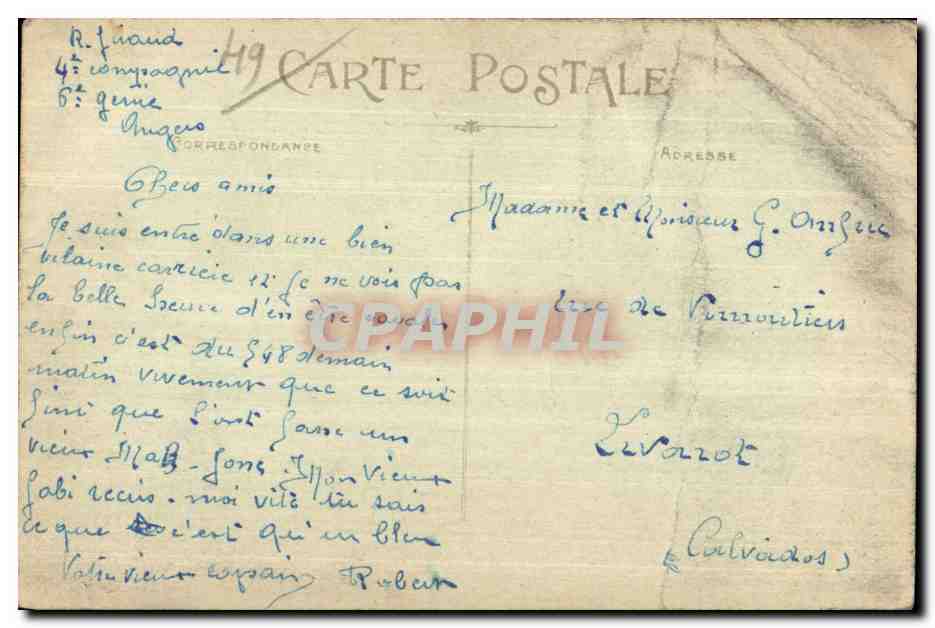 R. Giraud
4e compagnie
6e génie
Angers
49
CARTE POSTALE
CORRESPONDANCE
ADRESSE
Chers amis
Je suis entré dans une bien
vilaine carrière et je ne vois pas
la belle heure d'en être
enfin c'est du 548 demain
matin vivement que ce soit
fini que l'on fasse un
vieux Mon vieux
Gabi écris-moi vite tu sais
ce que c'est qu'un bleu
Votre vieux copain Robert
Madame et Monsieur G.
rue de Vimoutiers
Livarot
(Calvados)
CPAPHIL